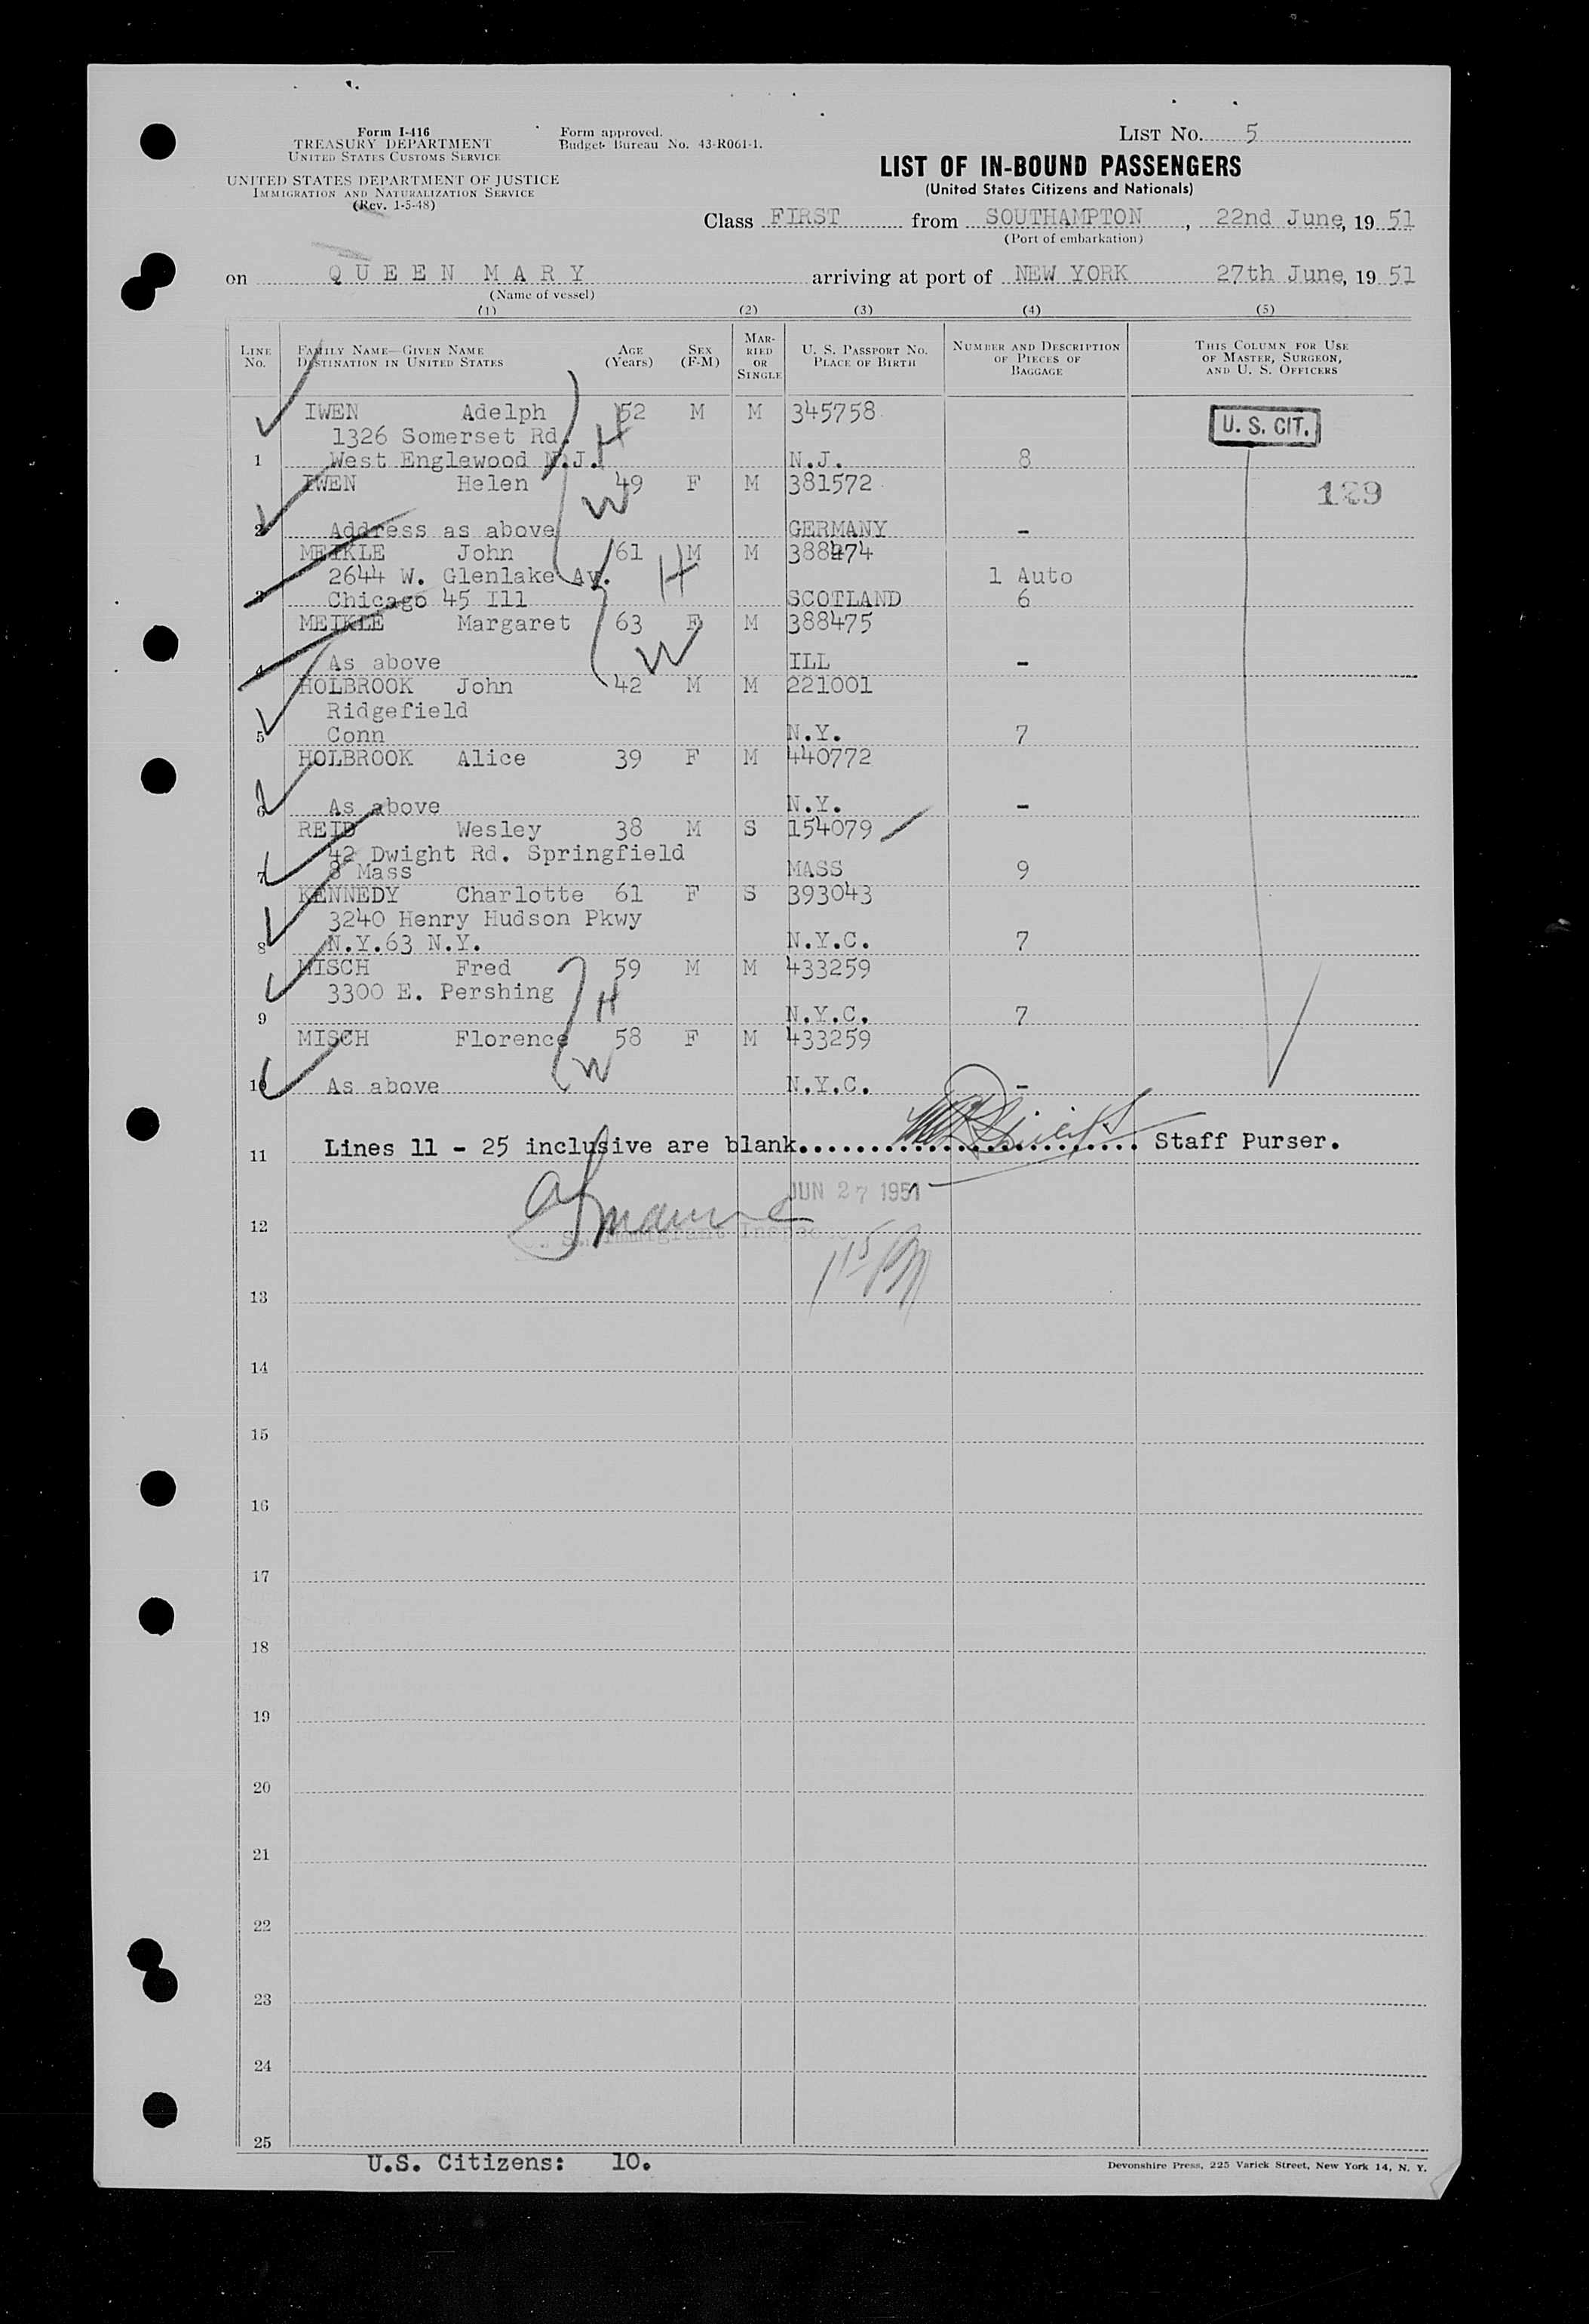 Form I-416
TREASURY DEPARTMENT
UNITED STATES CUSTOMS SERVICE
UNITED STATES DEPARTMENT OF JUSTICE
IMMIGRATION AND NATURALIZATION SERVICE
(Rev. 1-5-48)
Form approved.
Budget Bureau No. 43-R061-1.
LIST No. 5
LIST OF IN-BOUND PASSENGERS
(United States Citizens and Nationals)
Class FIRST from SOUTHAMPTON, 22nd June, 19 51
(Port of embarkation)
on QUEEN MARY arriving at port of NEW YORK 27th June, 19 51
(Name of vessel)
(1) (2) (3) (4) (5)
LINE No. FAMILY NAME—GIVEN NAME DESTINATION IN UNITED STATES AGE (Years) SEX (F-M) MARRIED OR SINGLE U. S. PASSPORT NO. PLACE OF BIRTH NUMBER AND DESCRIPTION OF PIECES OF BAGGAGE THIS COLUMN FOR USE OF MASTER, SURGEON, AND U. S. OFFICERS
IWEN Adelph 52 M M 345758
U. S. CIT.
1326 Somerset Rd. H
1 West Englewood N.J. N.J. 8
IWEN Helen 49 F M 381572 129
W
2 Address as above GERMANY -
MEIKLE John 61 M M 388474
2644 W. Glenlake Av. H 1 Auto
3 Chicago 45 Ill SCOTLAND 6
MEIKLE Margaret 63 F M 388475
W
4 As above ILL -
HOLBROOK John 42 M M 221001
Ridgefield
5 Conn N.Y. 7
HOLBROOK Alice 39 F M 440772
6 As above N.Y. -
REID Wesley 38 M S 154079
42 Dwight Rd. Springfield
7 8 Mass MASS 9
KENNEDY Charlotte 61 F S 393043
3240 Henry Hudson Pkwy
8 N.Y.63 N.Y. N.Y.C. 7
MISCH Fred 59 M M 433259
3300 E. Pershing H
9 N.Y.C. 7
MISCH Florence 58 F M 433259
W
10 As above N.Y.C. -
11 Lines 11 - 25 inclusive are blank........................ Staff Purser.
JUN 27 1951
12 Immigrant
115 PM
13
14
15
16
17
18
19
20
21
22
23
24
25
U.S. Citizens: 10.
Devonshire Press, 225 Varick Street, New York 14, N. Y.